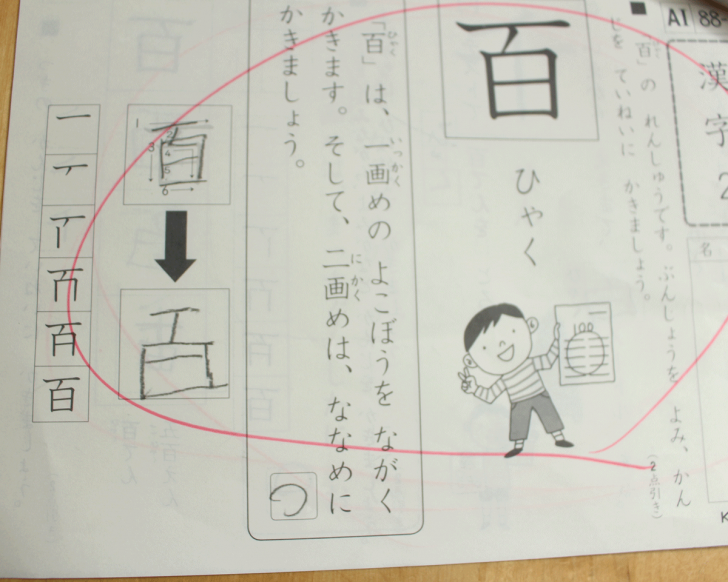 AI 88
漢字2
名
■ 「百」の れんしゅうです。ぶんしょうを よみ、かん
じを ていねいに かきましょう。
(2点引き)
百
ひゃく
100
「百」は、一画めの よこぼうを ながく
ひゃく いっかく
かきます。そして、二画めは、ななめに
にかく
かきましょう。
つ
百
1
3
5
6
百
一
百
百
百